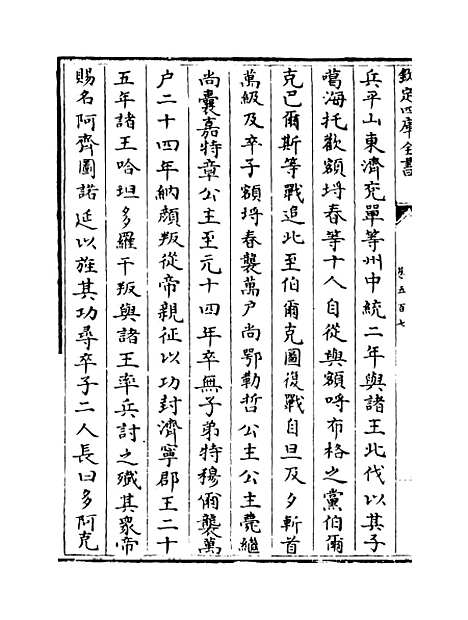 欽定四庫全書
卷五百七
兵平山東濟兖單等州中統二年與諸王北伐以其子
噶海托歡額埒春等十人自從與額呼布格之黨伯爾
克巴爾斯等戰追北至伯爾克圖復戰自旦及夕斬首
萬級及卒子額埒春襲萬户尚鄂勒哲公主公主薨繼
尚囊嘉特章公主至元十四年卒無子弟特穆爾襲萬
户二十四年納顔叛從帝親征以功封濟寧郡王二十
五年諸王哈坦多羅干叛與諸王率兵討之殱其衆帝
賜名阿齊圖諾延以旌其功尋卒子二人長曰多阿克